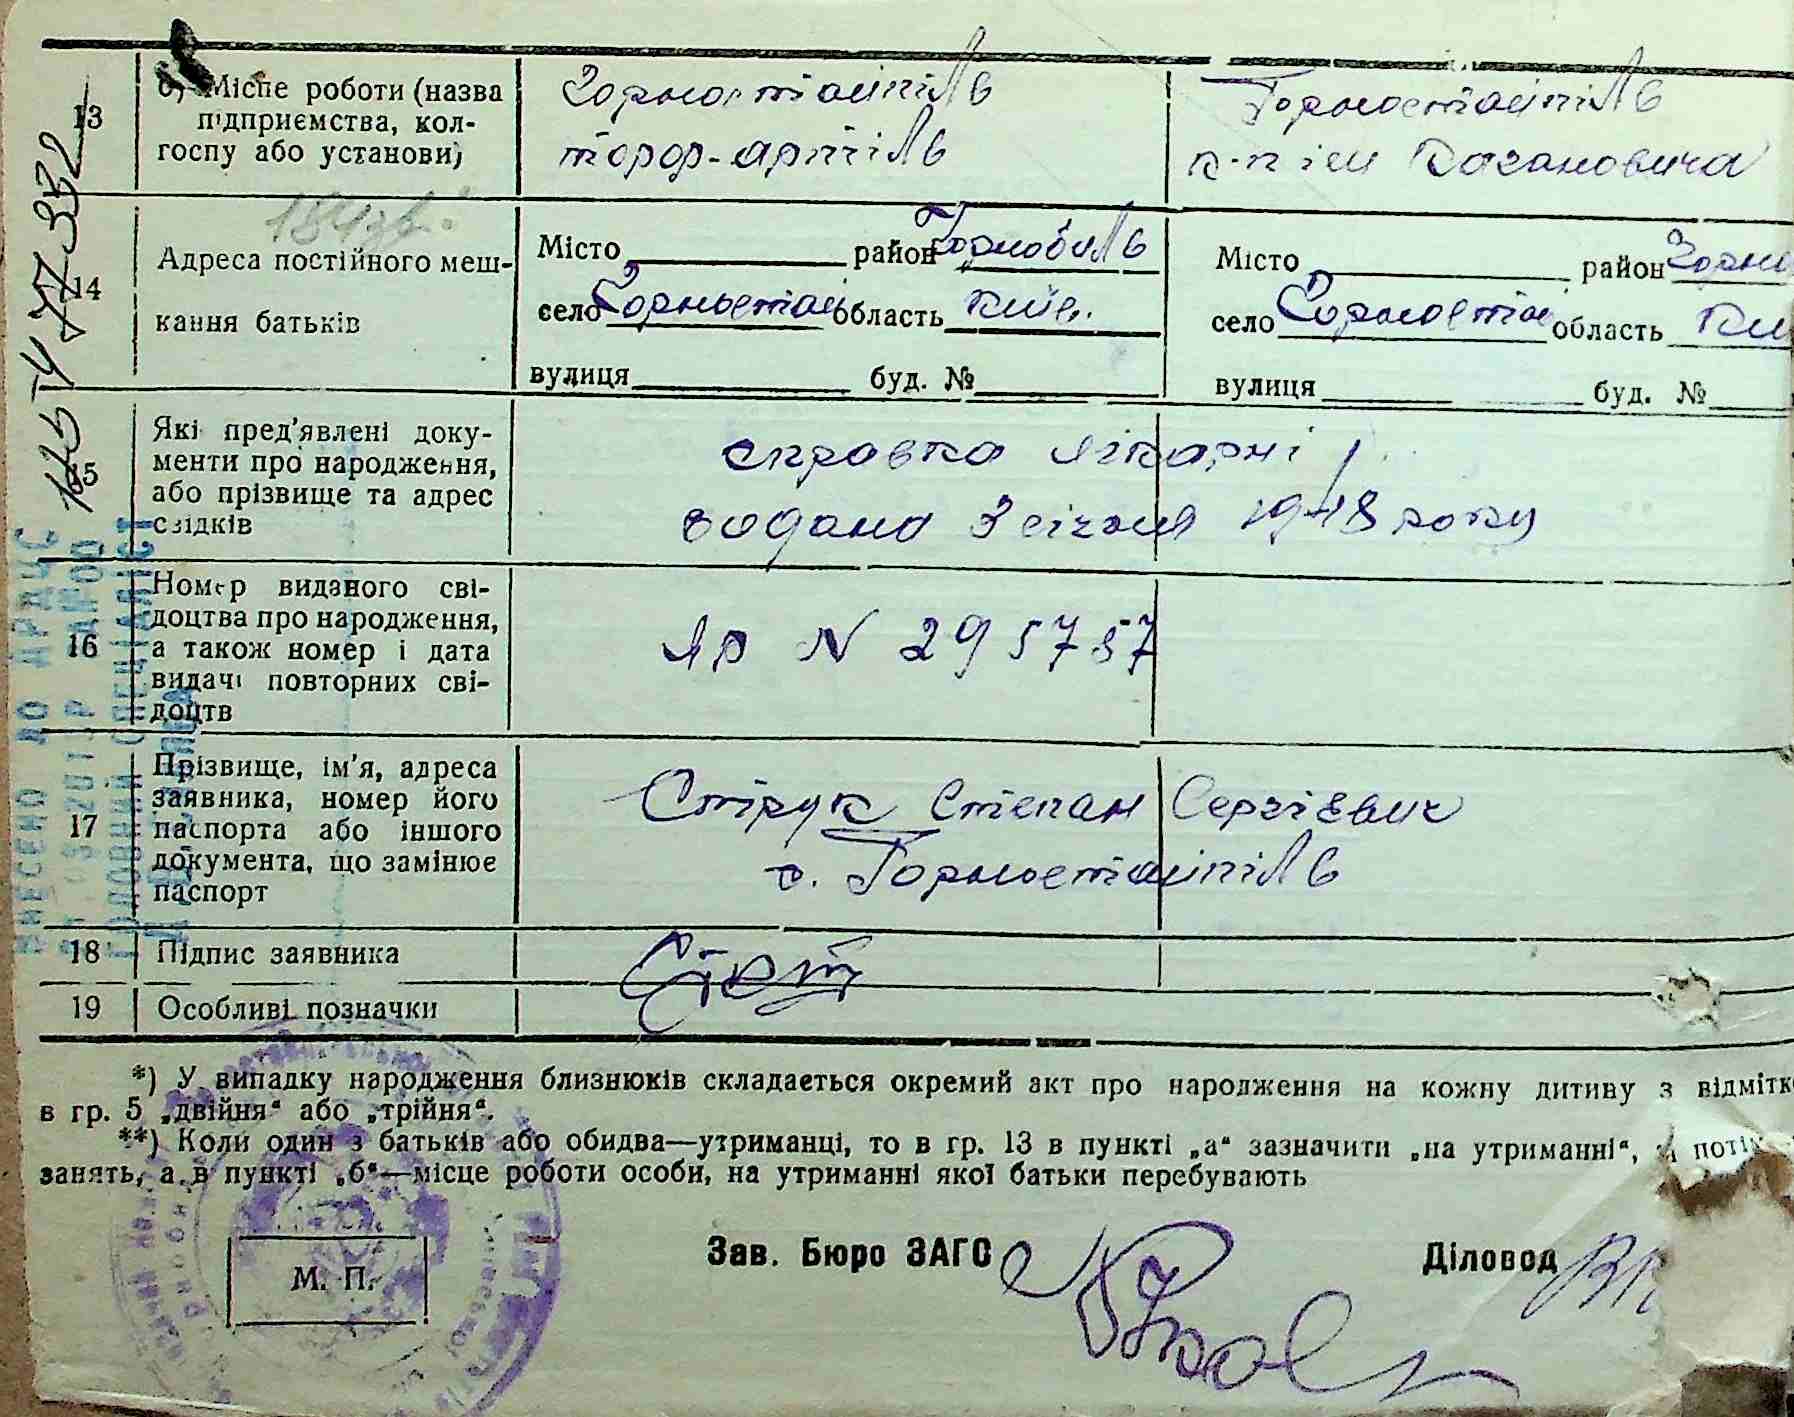 13 б) Місце роботи (назва підприємства, колгоспу або установи)
Горностайпіль
торор-артіль
Горностайпіль
к-п ім Кагановича
184 зв.
14 Адреса постійного мешкання батьків
Місто район Чорнобиль
село Горностай область Київ.
вулиця буд. №
Місто район Чорно
село Горностай область Ки
вулиця буд. №
15 Які пред’явлені документи про народження, або прізвище та адрес свідків
справка лікарні
видана 3 січня 1948 року
16 Номер виданого свідоцтва про народження, а також номер і дата видачі повторних свідоцтв
ЯР N 295757
17 Прізвище, ім’я, адреса заявника, номер його паспорта або іншого документа, що замінює паспорт
Струк Степан Сергієвич
с. Горностайпіль
18 Підпис заявника
19 Особливі позначки
*) У випадку народження близнюків складається окремий акт про народження на кожну дитину з відмітк
в гр. 5 „двійня“ або „трійня“.
**) Коли один з батьків або обидва—утриманці, то в гр. 13 в пункті „а“ зазначити „на утриманні“, а потім
занять, а в пункті „б“—місце роботи особи, на утриманні якої батьки перебувають
М. П.
Зав. Бюро ЗАГС
Діловод
ВНЕСЕНО ДО ДРАЦС
ГОЛОВНИЙ СПЕЦІАЛІСТ